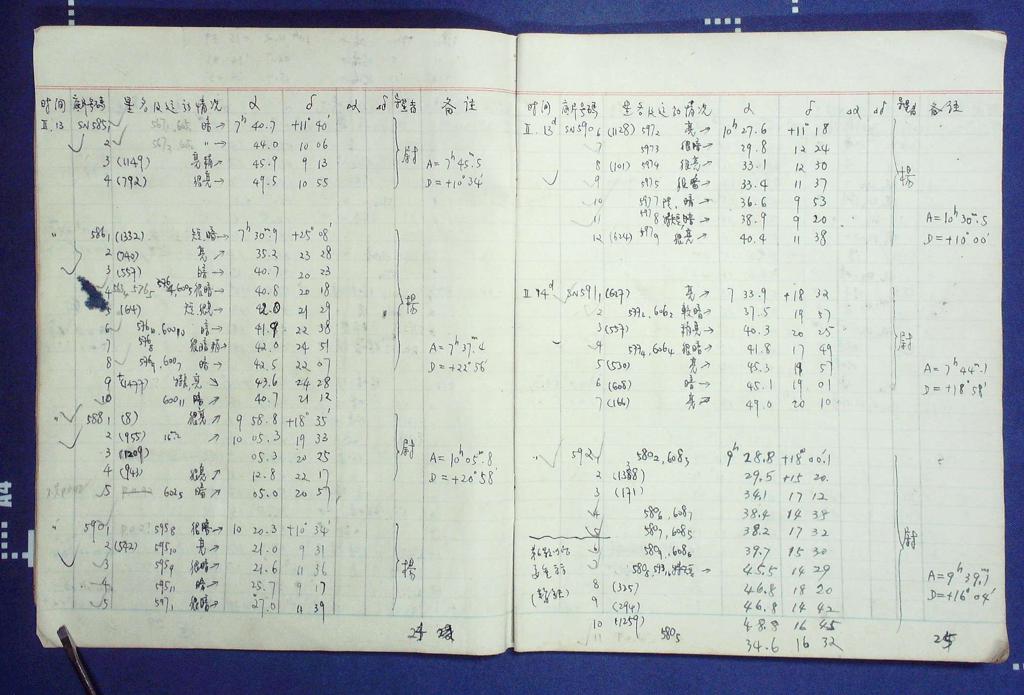 时间 底片号码 星名及运动情况 α δ Δα Δδ 备注
II.13 SN585₁ 暗→ 7ʰ 40.7 +11° 40′
2 〃 44.0 10 06
3 (1149) 45.9 9 13 A=7ʰ45ᵐ.5
4 (792) 很亮→ 49.5 10 55 D=+10°34′
尉
〃 586₁ (1332) 短,暗→ 7ʰ 30ᵐ.9 +25° 08′
2 (740) 亮↗ 35.2 23 28
3 (557) 暗→ 40.7 20 23
4 很暗→ 40.8 20 18
5 (64) 42.0 21 29
6 暗↗ 41.9 22 38
7 42.0 24 51 A=7ʰ37ᵐ.4
8 暗→ 42.5 22 07 D=+22°56′
9 (1477) 43.6 24 28
10 600₁₁ 暗↗ 40.7 21 12
杨
〃 588₁ (8) 很亮↗ 9 58.8 +18° 35′
2 (955) ↗ 10 05.3 19 33
3 (1209) 05.3 20 25 A=10ʰ05ᵐ.8
4 (943) 12.8 22 17 D=+20°58′
5 602₅ 暗↗ 05.0 20 57
尉
〃 590₁ 595₈ 很暗→ 10 20.3 +10° 34′
2 (542) 595₁₀ 亮→ 21.0 9 31
3 595₉ 很暗→ 21.6 11 36
4 595₁₁ 暗→ 25.7 9 17
5 597₁ 很暗→ 27.0 11 39
杨
24
时间 底片号码 星名及运动情况 α δ Δα Δδ 备注
II.13ᵈ SN590₆ (1128) 597₂ 亮→ 10ʰ 27.6 +11° 18
7 597₃ 很暗→ 29.8 12 24
8 (101) 597₄ 很亮→ 33.1 12 30
9 597₅ 很暗→ 33.4 11 37
10 597₇ 暗→ 36.6 9 53
11 597₈ 38.9 9 20 A=10ʰ30ᵐ.5
12 (624) 597₉ 很亮→ 40.4 11 38 D=+10°00′
杨
II.14ᵈ SN591₁ (627) 亮→ 7 33.9 +18 32
2 较暗→ 37.5 19 57
3 (557) 稍亮→ 40.3 20 25
4 很暗→ 41.8 17 49
5 (530) 亮→ 45.3 19 57 A=7ʰ44ᵐ.1
6 (608) 暗→ 45.1 19 01 D=+18°58′
7 (166) 49.0 20 10
尉
〃 592₁ 580₂,608₃ 9ʰ 28.8 +18° 00.1
2 (1388) 29.5 +15 20
3 (171) 34.1 17 12
4 580₆,608₇ 38.4 14 38
5 580₇,608₅ 38.2 17 32
6 580₉,608₆ 39.7 15 30
7 45.5 14 29 A=9ʰ39ᵐ.1
8 (325) 46.8 18 20 D=+16°04′
9 (294) 46.8 14 42
10 (1259) 48.8 16 45
11 580₅ 34.6 16 32
尉
25